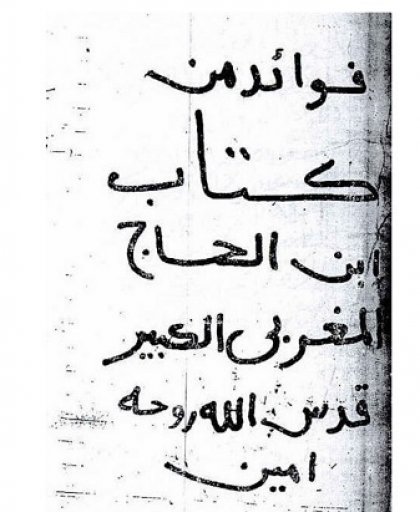 فوائد من
كتاب
ابن الحاج
المغربى الكبير
قدس الله روحه
امين